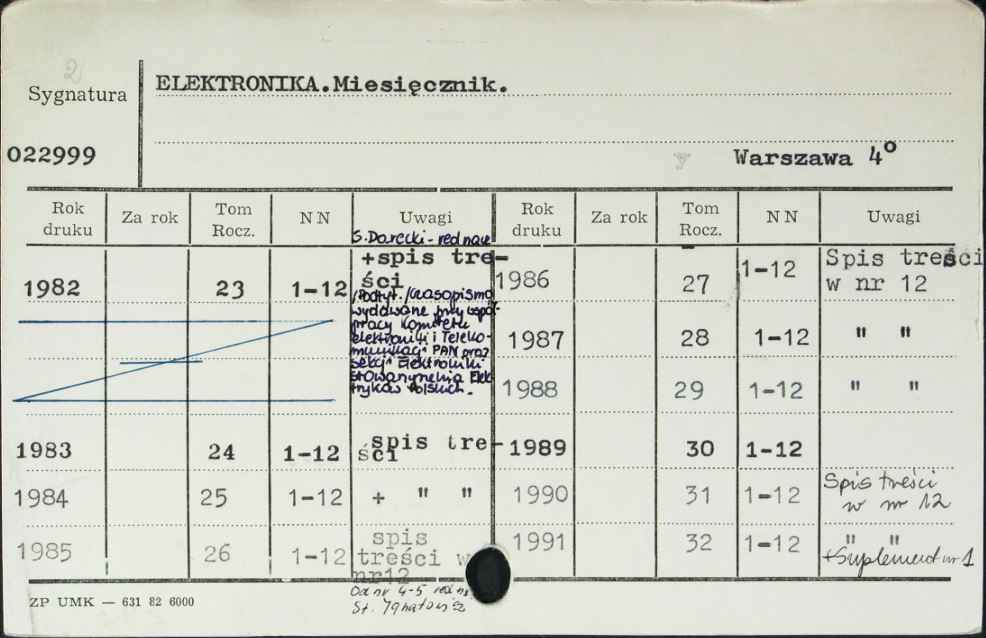 2
Sygnatura
ELEKTRONIKA.Miesięcznik.
022999
Warszawa 4°
Rok druku Za rok Tom Rocz. NN Uwagi Rok druku Za rok Tom Rocz. NN Uwagi
S. Darecki - red nacz
1982 23 1-12 +spis tre-
ści
/Podtyt./Czasopismo
wydawane przy współ-
pracy Komitetu
elektroniki i Teleko-
munikacji PAN oraz
Sekcji Elektroniki
Stowarzyszenia Elek
tryków Polskich.
1986 27 1-12 Spis treści
w nr 12
1987 28 1-12 " "
1988 29 1-12 " "
1983 24 1-12 spis tre-
ści
1989 30 1-12
1984 25 1-12 + " "
1990 31 1-12 Spis treści
w nr 12
1985 26 1-12 spis
treści w
nr12
1991 32 1-12 " "
+Suplement nr 1
Od nr 4-5 red
St. Ignatowicz
ZP UMK — 631 82 6000